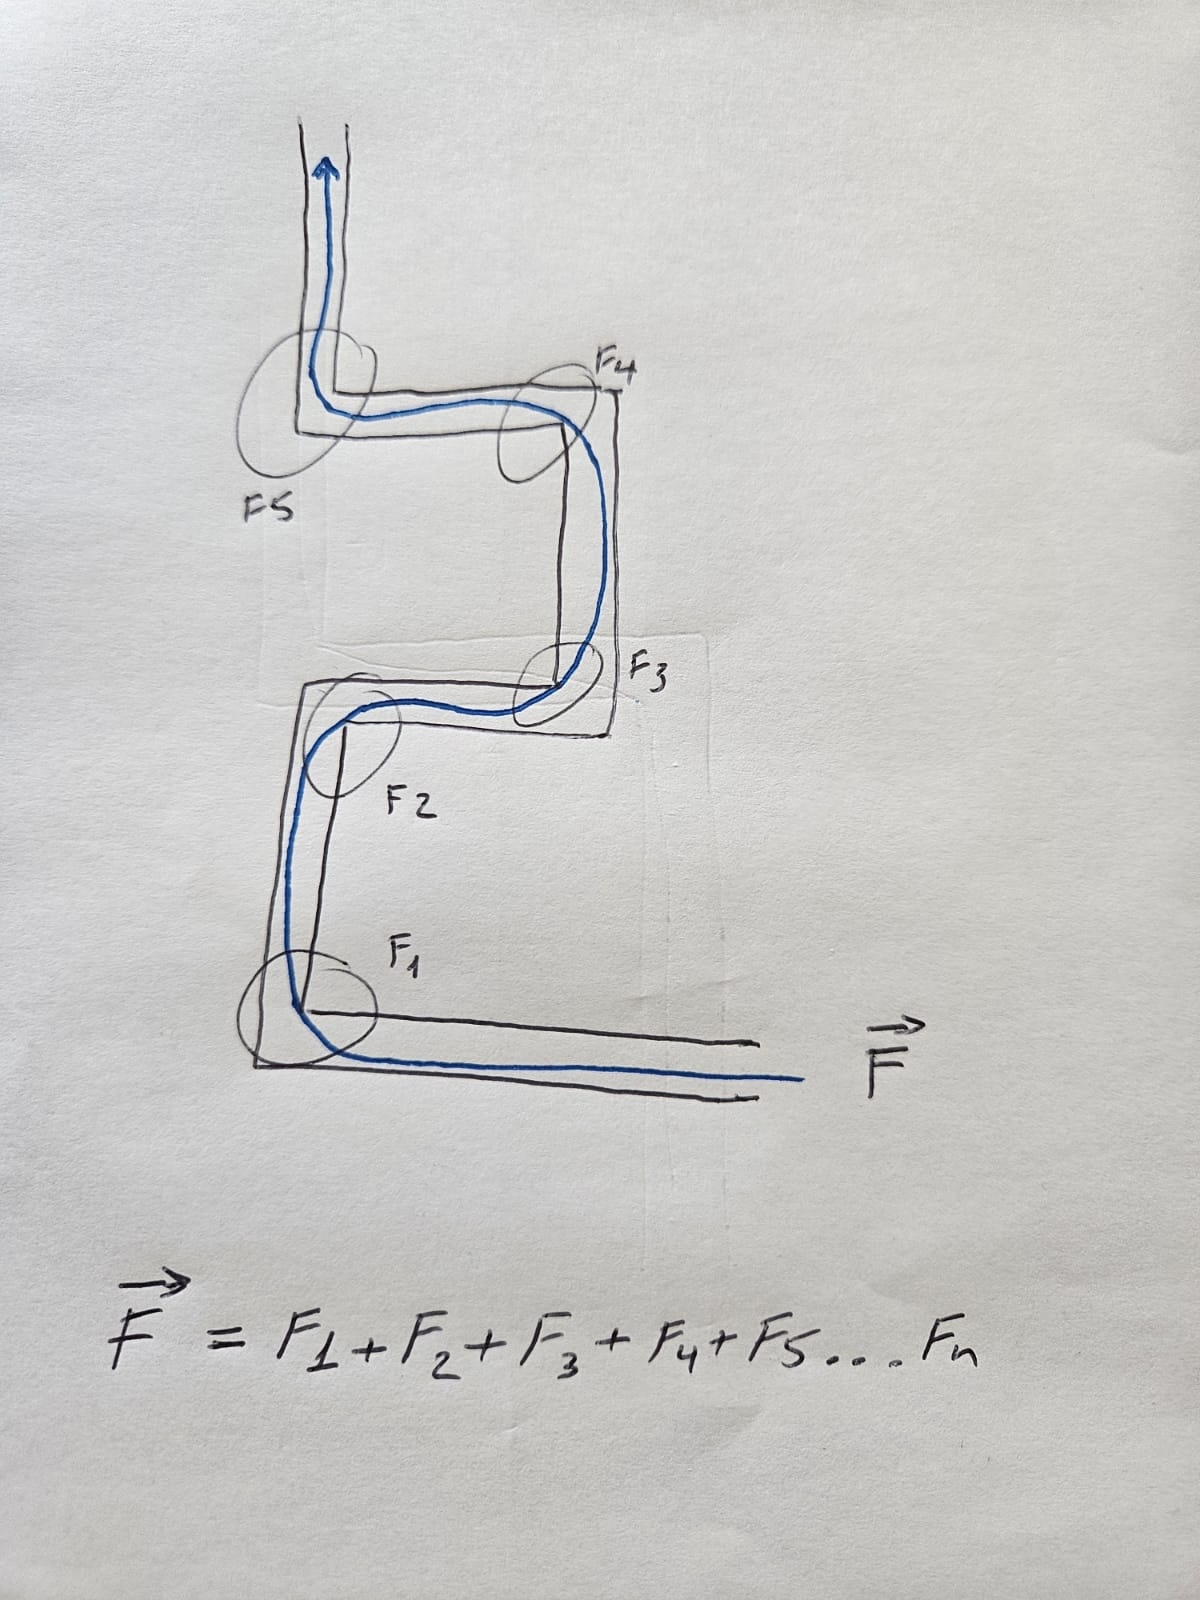 F4
F5
F3
F2
F1
F⃗
F⃗ = F1+F2+F3+F4+F5....Fn